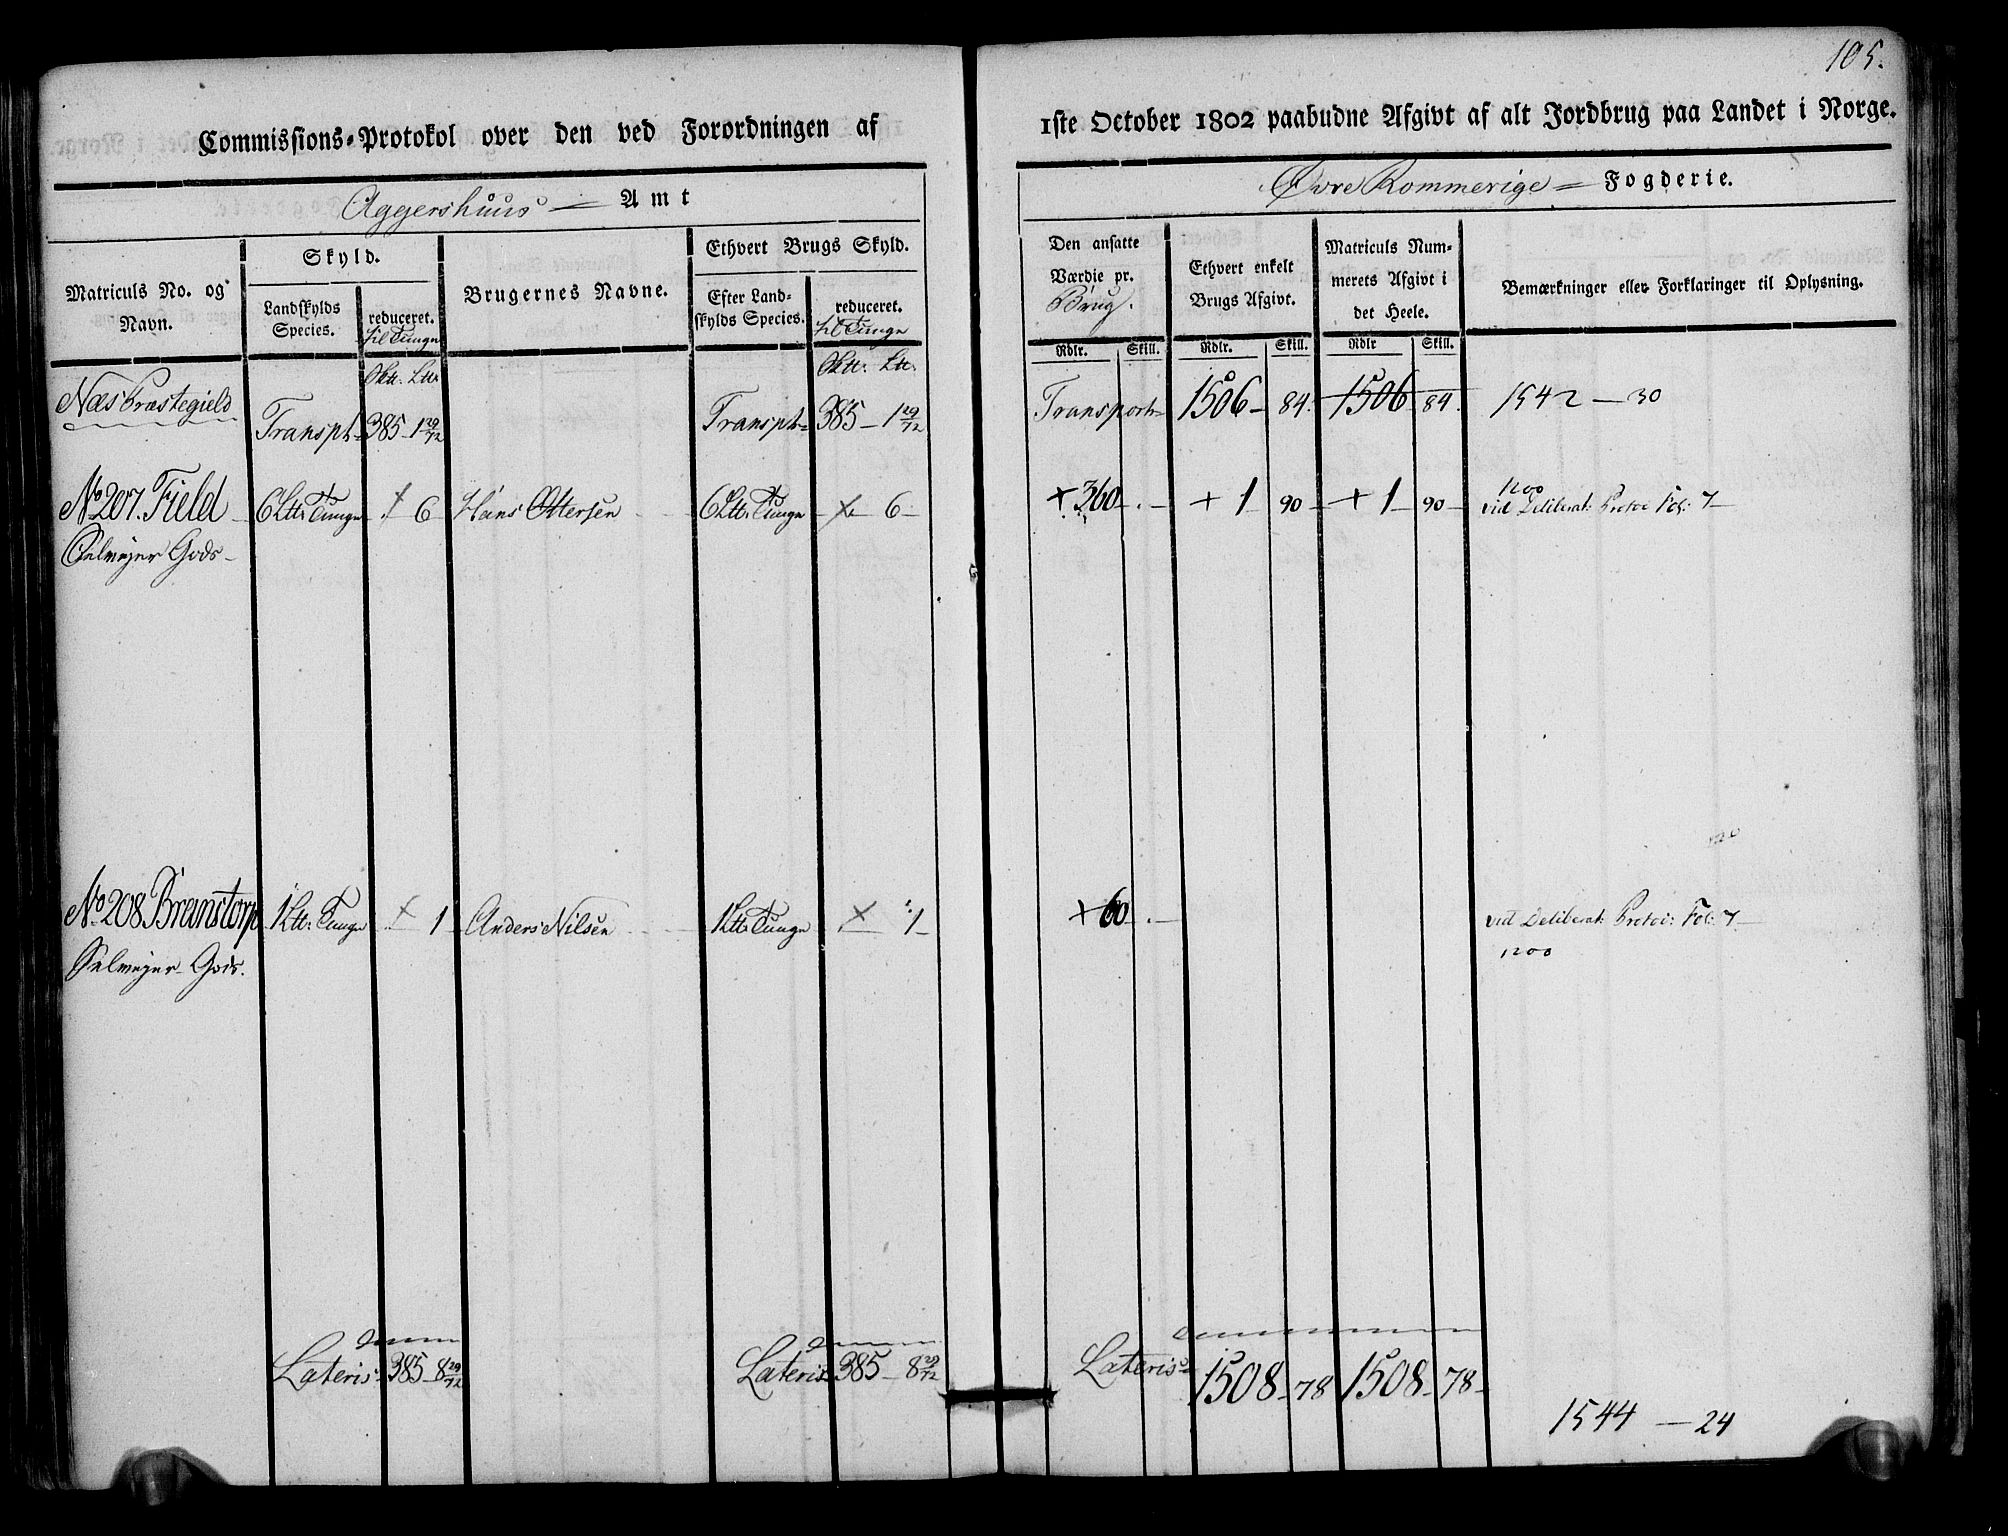 105.
Commissions-Protokol over den ved Forordningen af
1ste October 1802 paabudne Afgivt af alt Jordbrug paa Landet i Norge.
Aggershuus Amt
Øvre Rommerige Fogderie.
Matriculs No. og Navn.
Skyld.
Landskylds Species.
reduceret. til Tunge
Brugernes Navne.
Ethvert Brugs Skyld.
Efter Landskylds Species.
reduceret. til Tunge
Den ansatte Værdie pr. Brug.
Ethvert enkelt Brugs Afgivt.
Matriculs Nummerets Afgivt i det Heele.
Bemærkninger eller Forklaringer til Oplysning.
Rdlr. Skill. Rdlr. Skill. Rdlr Skill.
Næs Præstegield Transpt 385 - 1 29/72 Transpt 385 - 1 29/72 Transport 1506 - 84. 1506 84. 1542 - 30
No 207. Field 6 Ltt: Tunge + 6 Hans Ottersen 6 Ltt: Tunge + 6 - + 360 - . - + 1 90 - + 1 90 - 1200
vid Deliberat: Protoc Fol: 7
Selveyer Gods -
No 208 Branstorp 1 Ltt: Tunge + 1 Anders Nilsen 1 Ltt: Tunge + 1 - + 60 . - vid Deliberat: Protoc: Fol: 7
Selveyer Gods. 1200
Lateris 385 - 8 29/72 Lateris 385 - 8 29/72 Lateris 1508 - 78 1508 - 78 -
1544 - 24